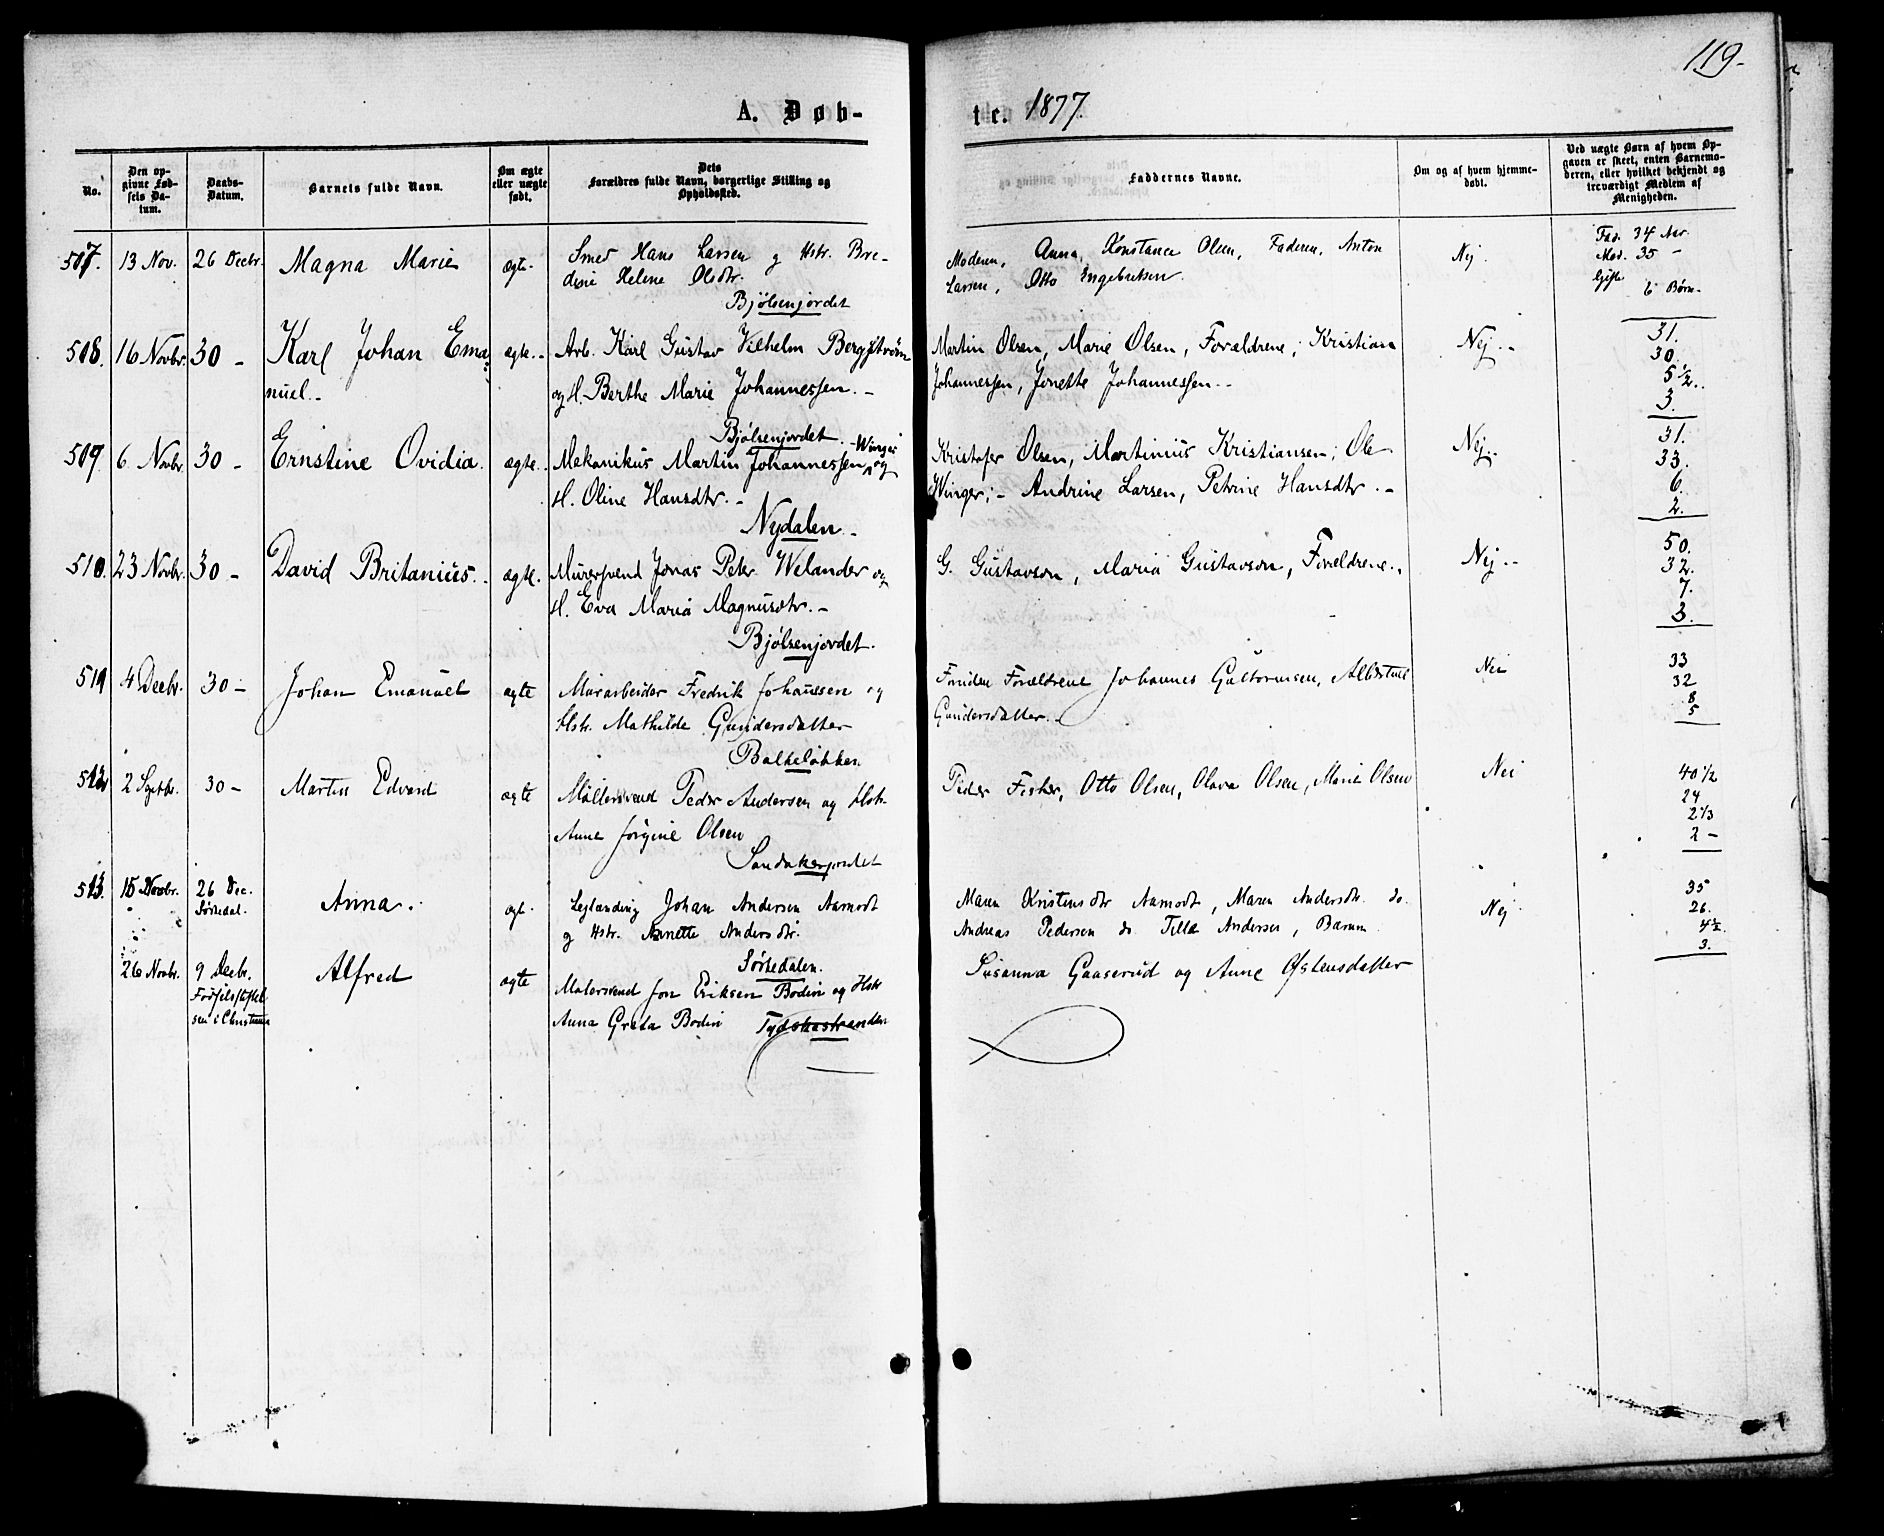 119.
A. Døb-
te. 1877.
No.
Den op-
givne Fød-
sels Da-
tum.
Daabs-
Datum.
Barnets fulde Navn.
Om ægte
eller uægte
født.
Dets
Forældres fulde Navn, borgerlige Stilling og
Opholdssted.
Faddernes Navne.
Om og af hvem hjemme-
døbt.
Ved uægte Børn af hvem Op-
gaven er skeet, enten Barnemo-
deren, eller hvilket bekjendt og
troværdigt Medlem af
Menigheden.
507. 13 Nov. 26 Decbr. Magna Marie ægte. Smed Hans Larsen g Hstr. Bre-
dine Helene Olsdtr.
Bjölsenjordet
Moderen, Anna, Konstance Olsen, Faderen, Anton
Larsen, Otto Engebretsen.
Nej.
Fad. 34 Aar
Mod. 35 –
Gifte
6 Børn.
508. 16 Novbr. 30 – Karl Johan Ema
nuel. –
ægte. Arb. Karl Gustav Vilhelm Bergström
og H. Berthe Marie Johannessen. –
Bjölsenjordet.
Martin Olsen, Marie Olsen, Forældrene, Kristian
Johannessen, Jonette Johannessen. –
Nej. –
31.
30.
5 1/2.
3.
509. 6. Novbr 30 – Ernstine Ovidia. ægte. Mekanikus Martin Johannessen Winger og
H. Oline Hansdtr. –
Nydalen. –
Kristofer Olsen, Martinius Kristiansen; Ole
Winger; – Andrine Larsen, Petrine Hansdtr. –
Nej.
31.
33.
6.
2.
510. 23 Novbr. 30 – David Britanius. ægte. Murersvend Jonas Peter Welander og
H. Eva Maria Magnusdtr. –
Bjölsenjordet.
G. Gustavson, Maria Gustavson, Forældrene.
Nej. –
50.
32.
7.
3.
511 4 Decbr. 30 – Johan Emanuel ægte Murarbeider Fredrik Johansen og
Hstr. Mathilde Gundersdatter
Balkeløkken
Foruden Forældrene Johannes Guttormsen, Albertine
Gundersdatter.
Nei
33
32
8
5
512 2 Septbr. 30 – Martin Edvard ægte Møllersvend Peder Andersen og Hstr.
Anne Jörgine Olsen
Sandakerjordet
Peder Fisker, Otto Olsen, Olava Olsen, Marie Olsen
Nei
40 1/2
24
2 1/3
2 –
513. 15 Novbr. 26 Dec.
Sörkedal.
Anna. ægt. Leilænding Johan Andersen Aamodt
g Hstr. Annette Andersdtr.
Sörkedalen.
Maren Kristensdtr Aamodt, Maren Andersdtr. do.
Andreas Pedersen do Tilla Andersen, Bærum
Nej
35
26.
4 1/2.
3.
26 Novbr. 9 Decbr.
Fødselsstiftel
sen i Christiania
Alfred ægte Malersvend Jon Eriksen Bodin og Hstr
Anna Greta Bodin Tydskestranden
Susanna Gaaserud og Anne Østensdatter